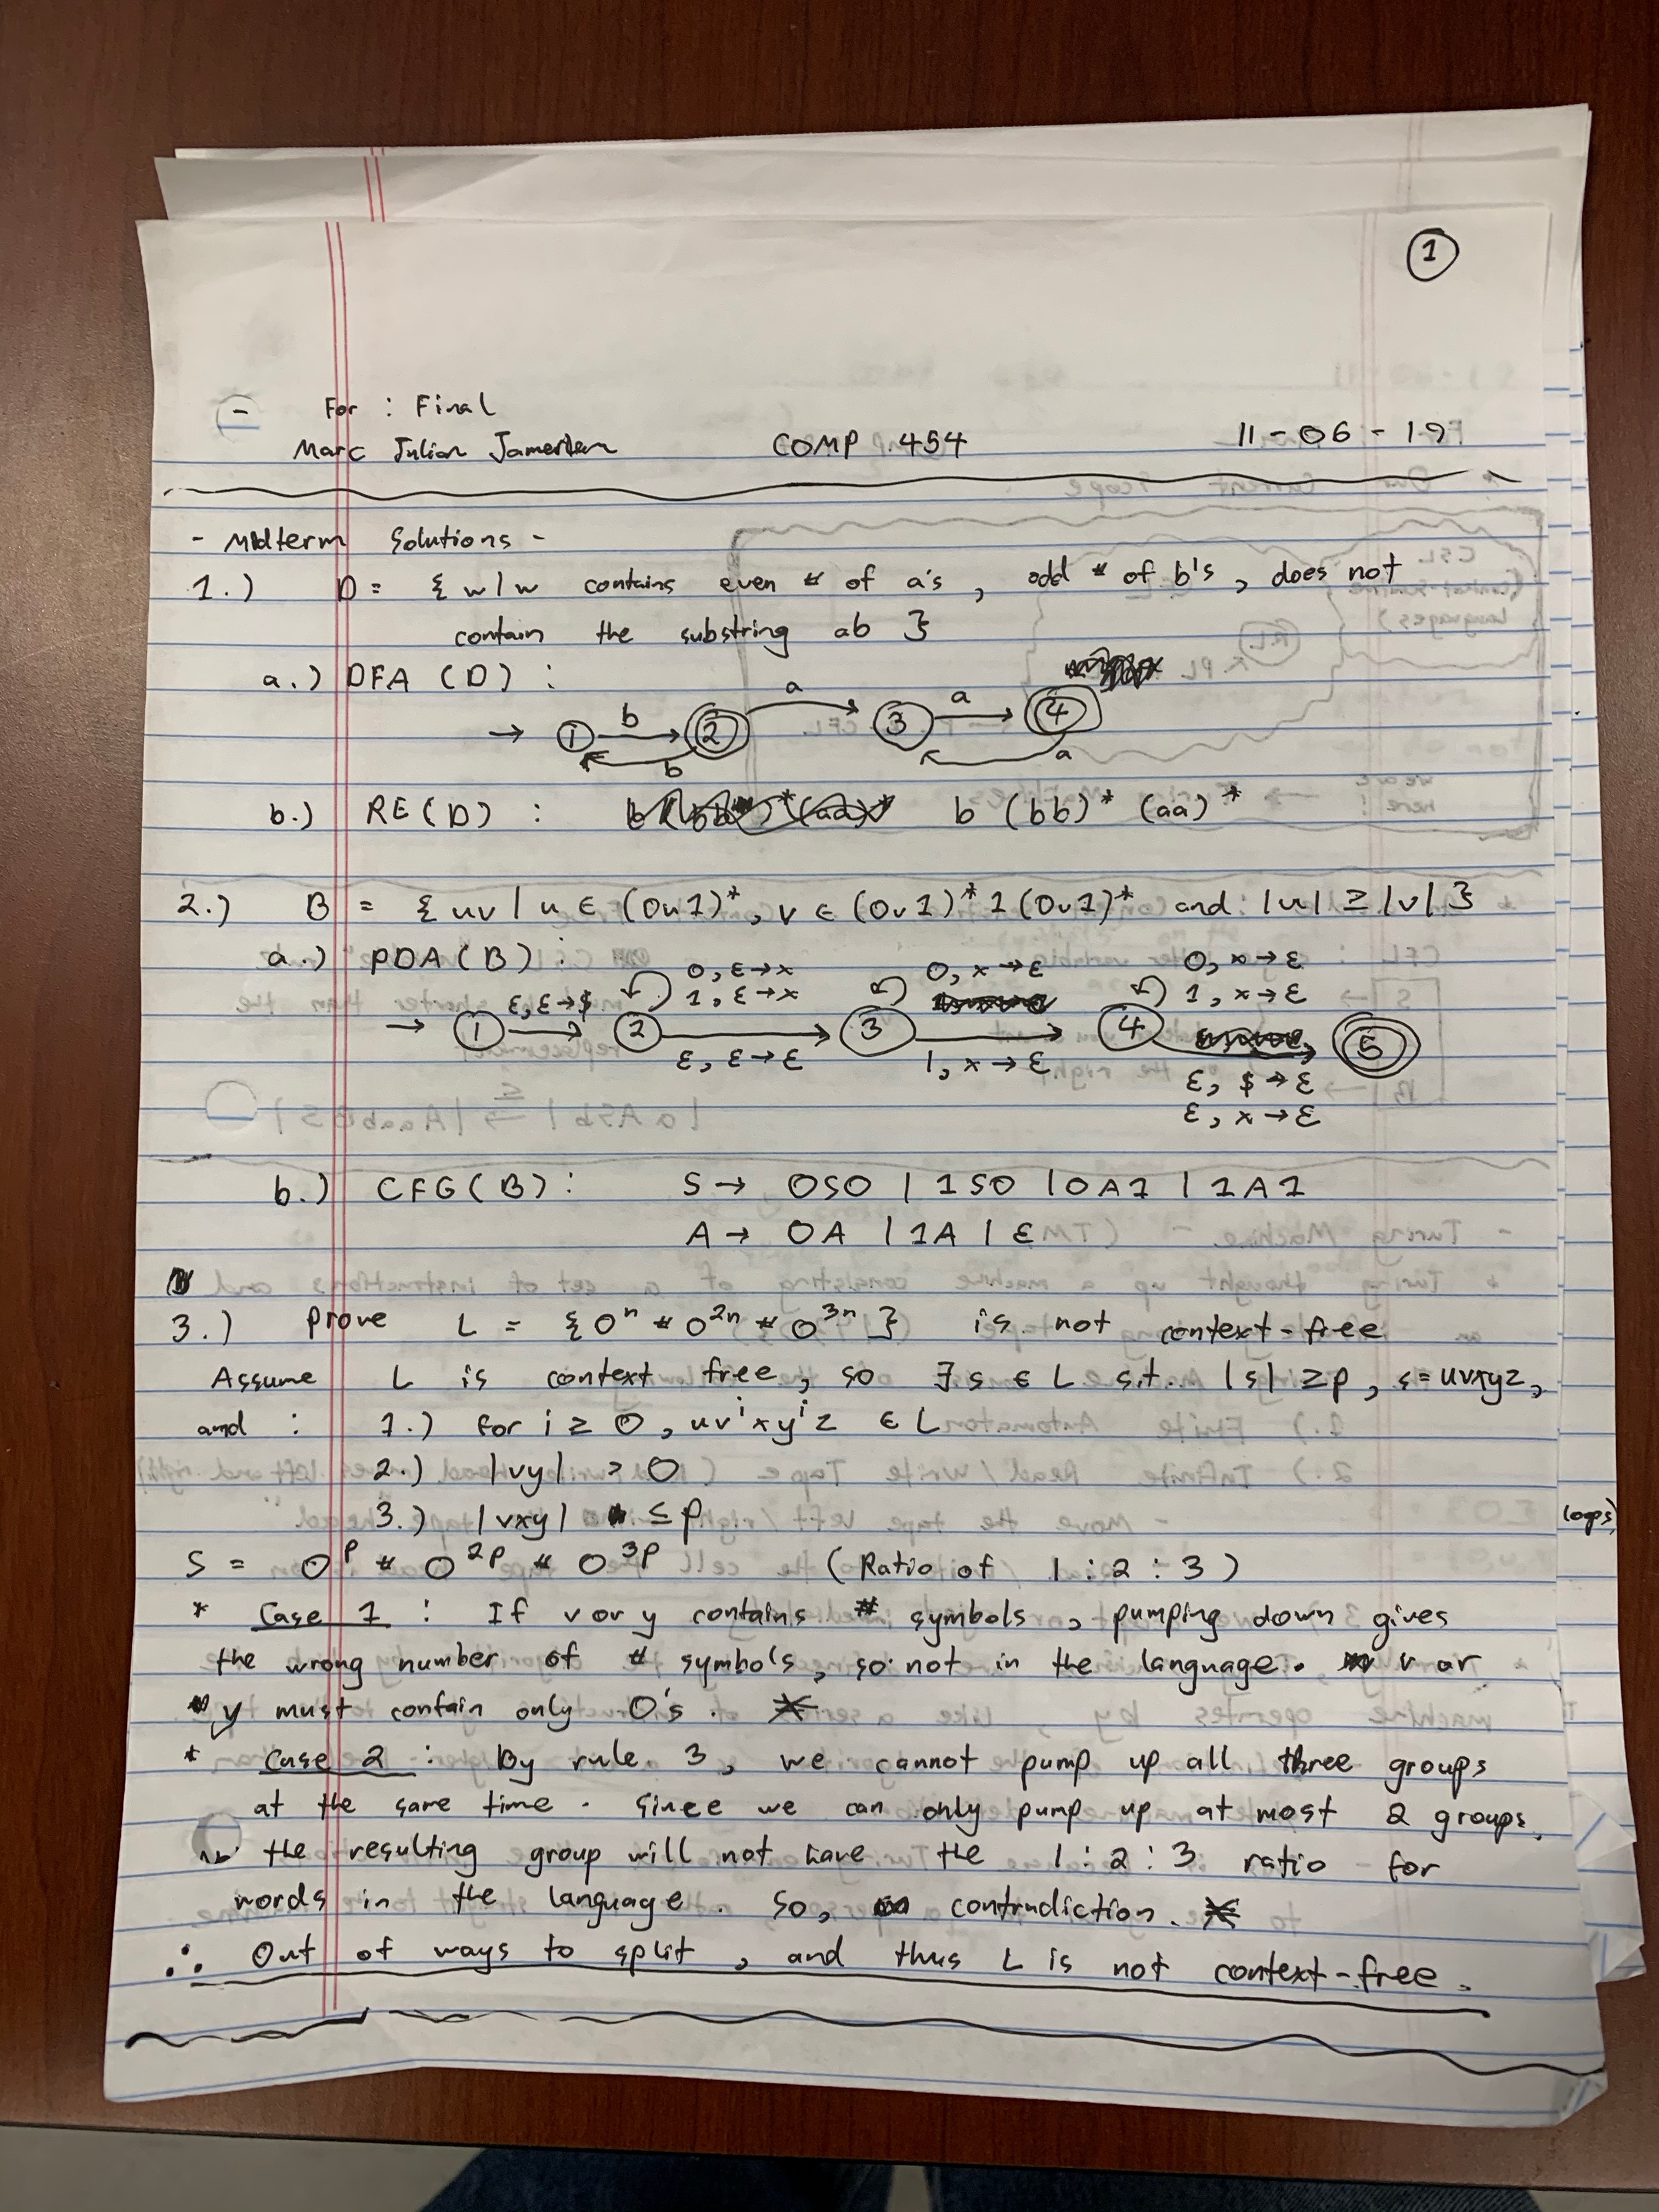 1
- For : Final
Marc Julian COMP 454 11-06-19
- Midterm Solutions -
1.) D = { w | w contains even # of a's, odd # of b's, does not
contain the substring ab }
a.) DFA (D) :
→ 1 b 2 a 3 a 4
b a
b.) RE(D) : b (bb)* (aa)*
2.) B = { uv | u ∈ (0∪1)*, v ∈ (0∪1)* 1 (0∪1)* and |u| ≥ |v| }
a.) PDA (B) :
0, ε→x 0, x→ε 0, x→ε
ε, ε→$ 1, ε→x 1, x→ε
→ 1 2 3 4 5
ε, ε→ε 1, x→ε ε, $→ε
ε, x→ε
b.) CFG (B) : S → 0S0 | 1S0 | 0A1 | 1A1
A → 0A | 1A | ε
3.) Prove L = { 0ⁿ # 0²ⁿ # 0³ⁿ } is not context-free
Assume L is context free, so ∃ s ∈ L s.t. |s| ≥ p, s = uvxyz,
and : 1.) for i ≥ 0, uvⁱxyⁱz ∈ L
2.) |vy| > 0
3.) |vxy| ≤ p
loops)
S = 0ᵖ # 0²ᵖ # 0³ᵖ (Ratio of 1 : 2 : 3)
* Case 1 : If v or y contains # symbols, pumping down gives
the wrong number of # symbols, so not in the language. v or
y must contain only 0's.
* Case 2 : By rule 3, we cannot pump up all three groups
at the same time. Since we can only pump up at most 2 groups,
the resulting group will not have the 1 : 2 : 3 ratio for
words in the language. So, contradiction.
∴ Out of ways to split, and thus L is not context-free.